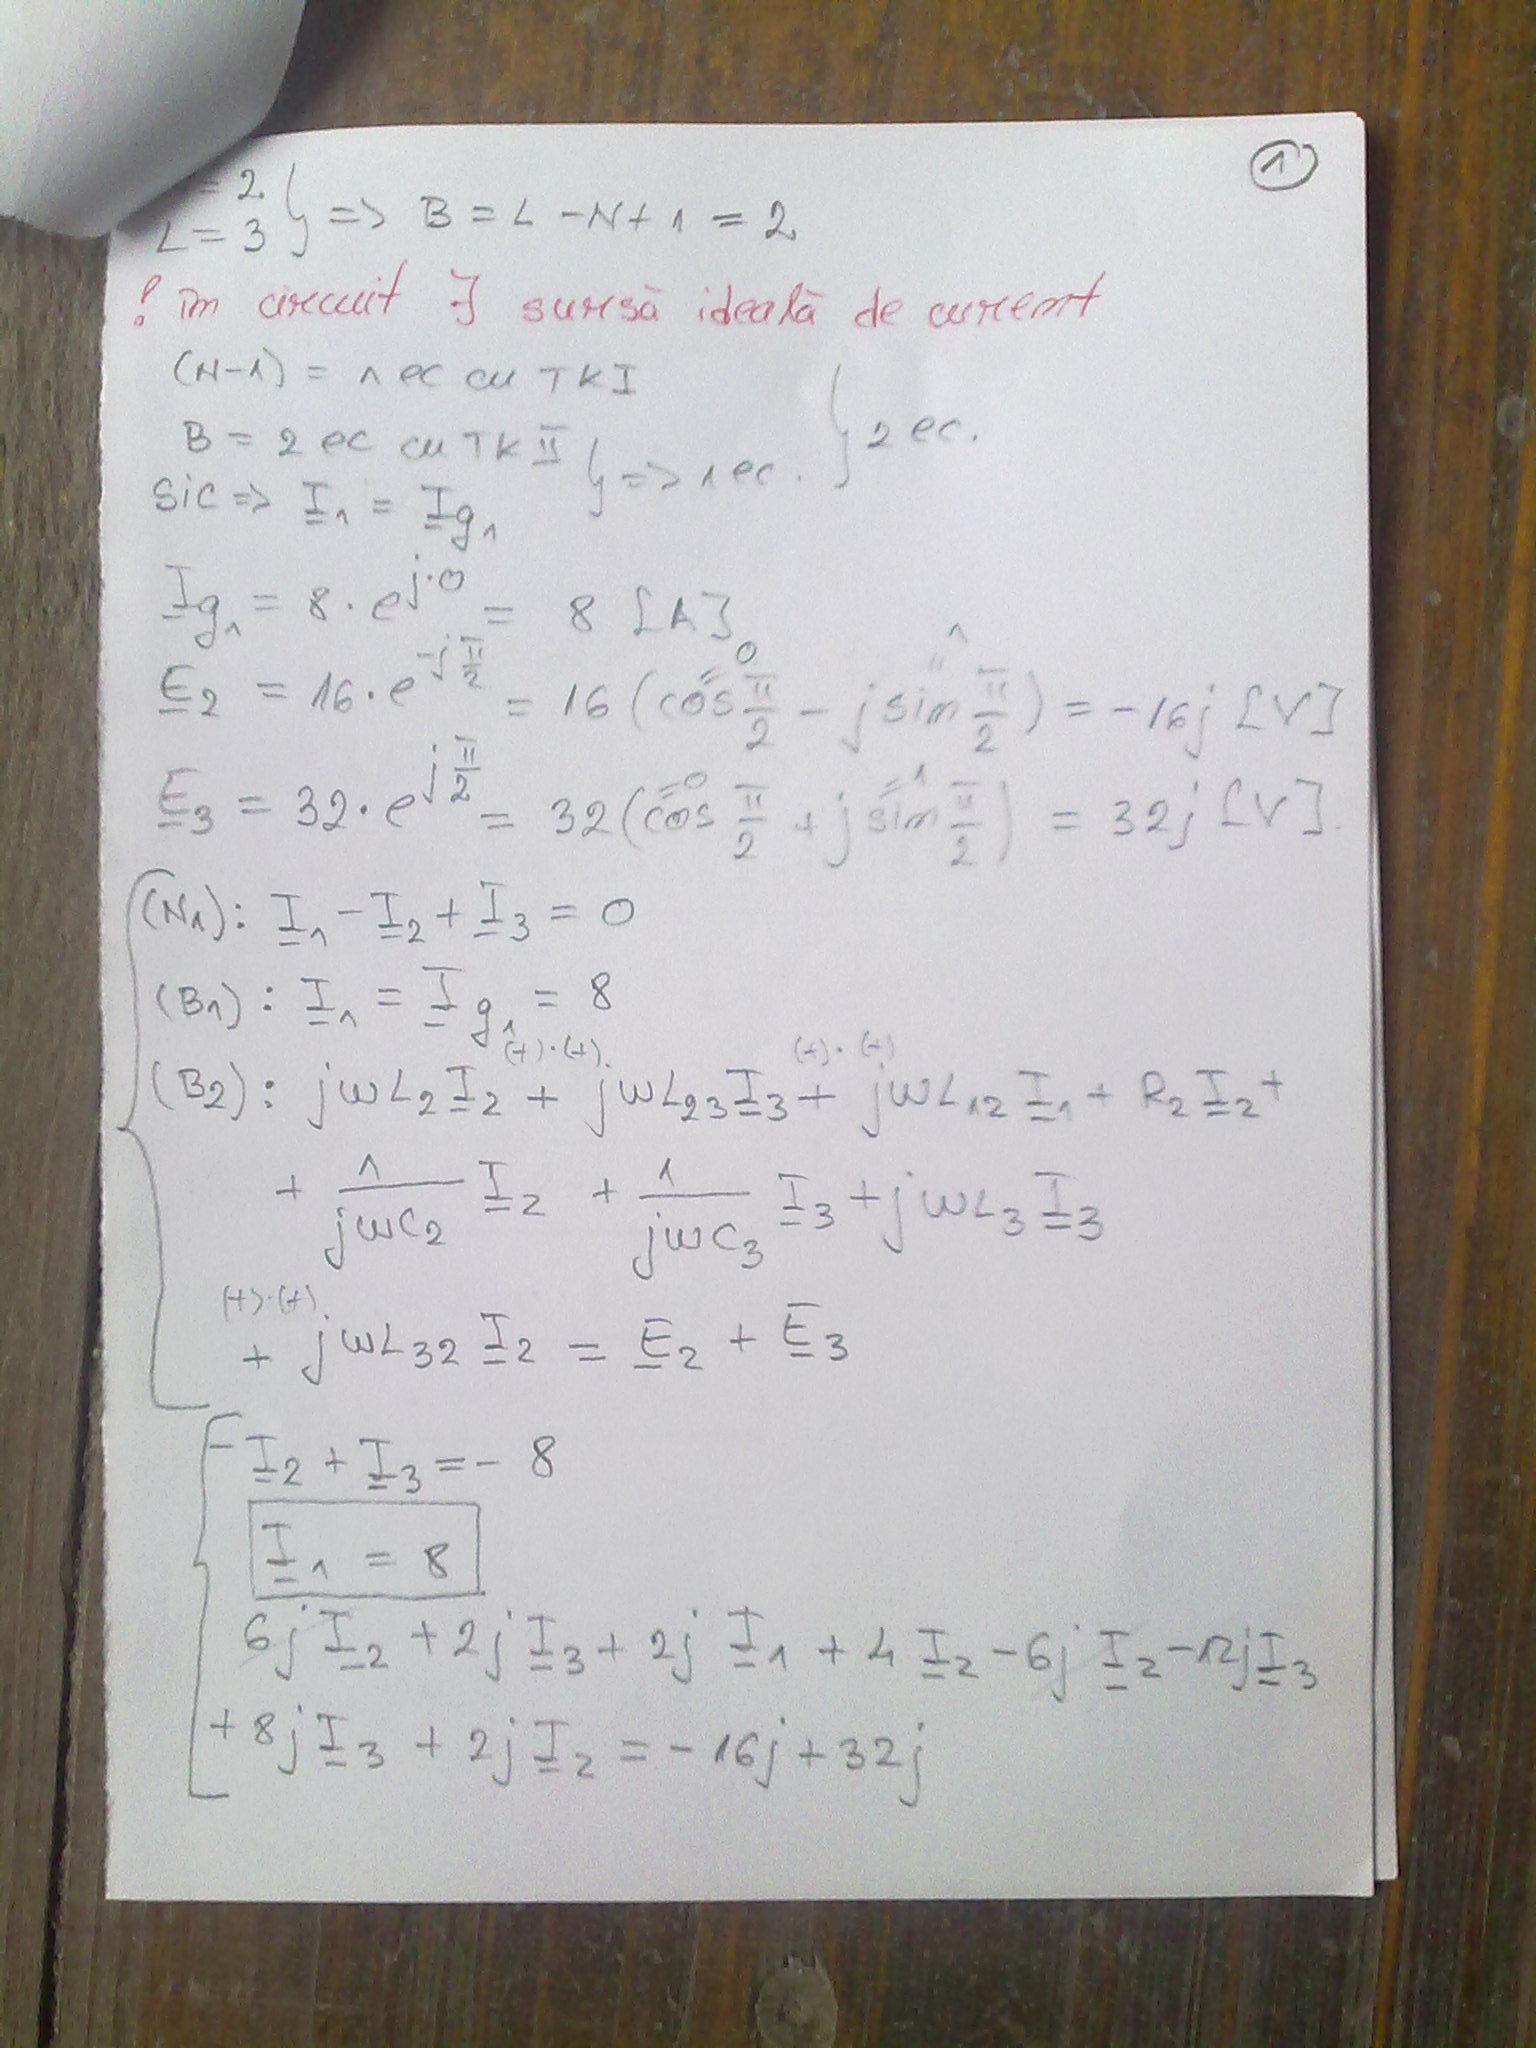 ①
= 2
L = 3 } => B = L - N + 1 = 2
! în circuit ∃ sursă ideală de curent
(N-1) = 1 ec cu TKI
B = 2 ec cu TKII } => 1 ec. } 2 ec.
SIC => I1 = Ig1
Ig1 = 8 · e^(j·0) = 8 [A]
E2 = 16 · e^(-jπ/2) = 16 (cos π/2 - j sin π/2) = -16j [V]
=0 =1
E3 = 32 · e^(jπ/2) = 32 (cos π/2 + j sin π/2) = 32j [V].
=0 =1
(N1): I1 - I2 + I3 = 0
(B1): I1 = Ig1 = 8
(+)·(+) (+)·(+)
(B2): jωL2 I2 + jωL23 I3 + jωL12 I1 + R2 I2 +
+ 1/(jωC2) I2 + 1/(jωC3) I3 + jωL3 I3
(+)·(+)
+ jωL32 I2 = E2 + E3
-I2 + I3 = - 8
I1 = 8
6j I2 + 2j I3 + 2j I1 + 4 I2 - 6j I2 - 12j I3
+ 8j I3 + 2j I2 = - 16j + 32j